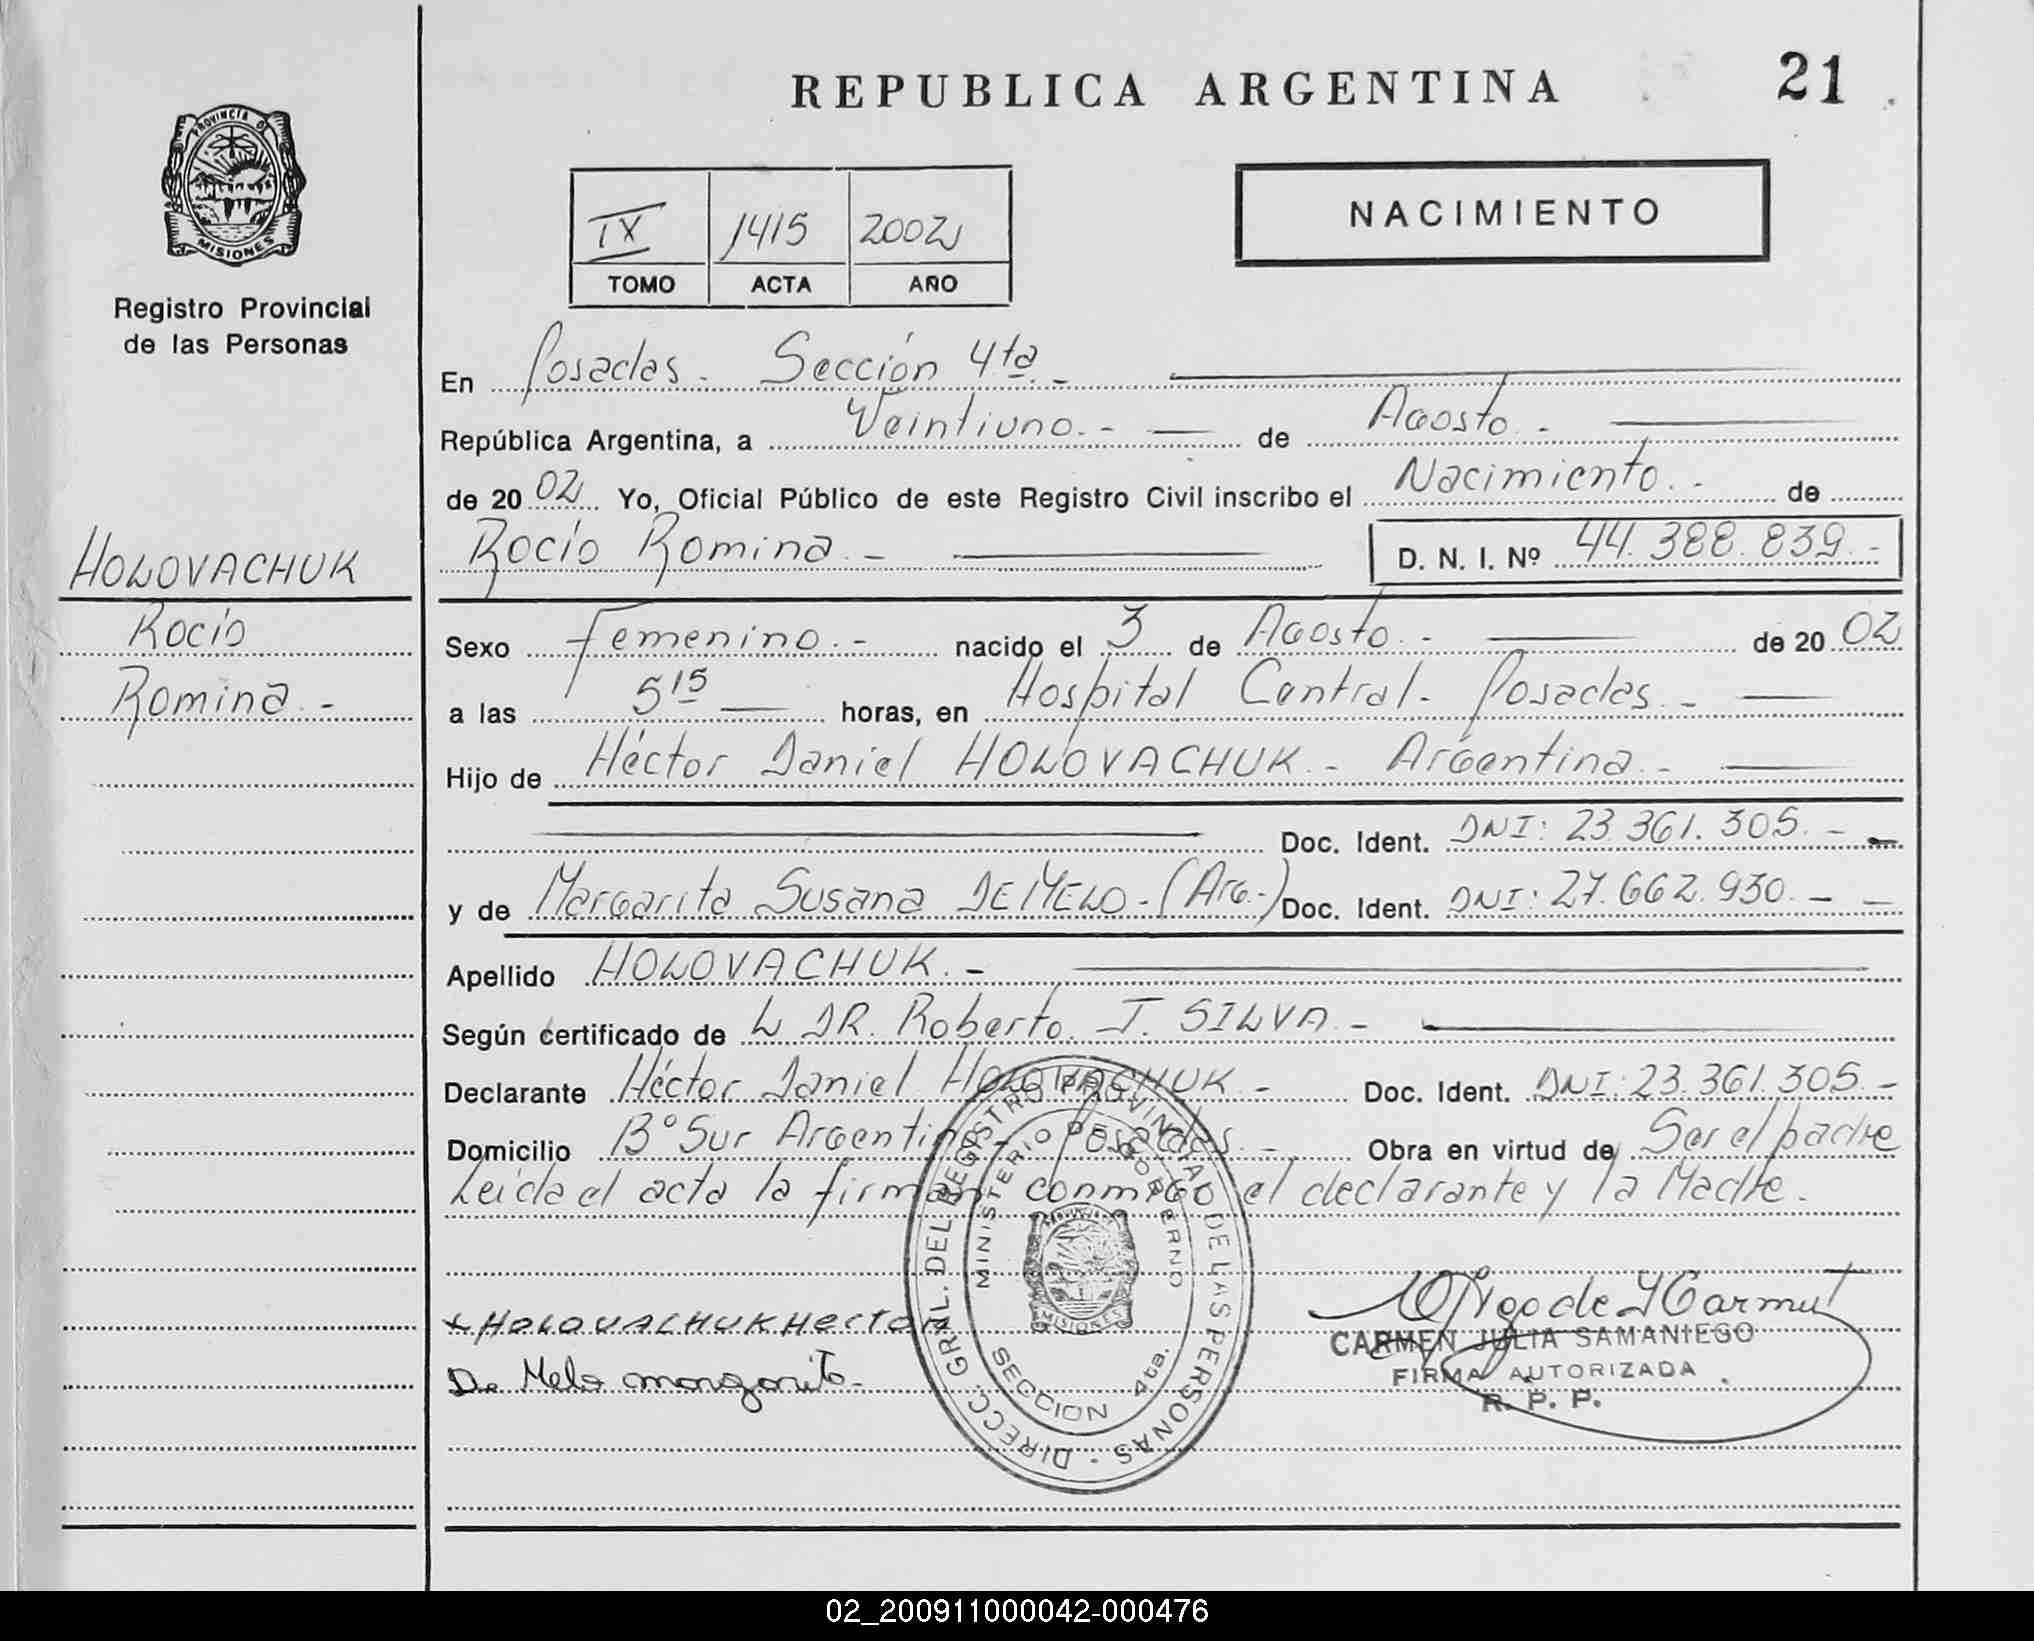 REPUBLICA ARGENTINA
21
PROVINCIA DE
MISIONES
Registro Provincial
de las Personas
IX 1415 2002
TOMO ACTA AÑO
NACIMIENTO
En Posadas. Sección 4ta.-
República Argentina, a Veintiuno.- de Agosto.-
de 20 02 Yo, Oficial Público de este Registro Civil inscribo el Nacimiento.- de
Rocío Romina.- D. N. I. Nº 44.388.839.-
HOLOVACHUK
Rocío
Romina.-
Sexo Femenino.- nacido el 3 de Agosto.- de 20 02
a las 5 15 horas, en Hospital Central. Posadas.-
Hijo de Héctor Daniel HOLOVACHUK.- Argentina.-
Doc. Ident. DNI: 23.361.305.-
y de Margarita Susana DE MELO.-(Arg.-) Doc. Ident. DNI: 27.662.930.-
Apellido HOLOVACHUK.-
Según certificado de L DR. Roberto. J. SILVA.-
Declarante Héctor Daniel HOLOVACHUK.- Doc. Ident. DNI: 23.361.305.-
Domicilio Bº Sur Argentino.- Posadas.- Obra en virtud de Ser el padre
Leida el acta la firman conmigo el declarante y la Madre.
HOLOVACHUK HECTOR
De Melo margarita.
DIRECC. GRAL. DEL REGISTRO PROVINCIAL DE LAS PERSONAS
MINISTERIO DE GOBIERNO
PROVINCIA DE
MISIONES
SECCION 4ta.
CARMEN JULIA SAMANIEGO
FIRMA AUTORIZADA
R. P. P.
02_200911000042-000476